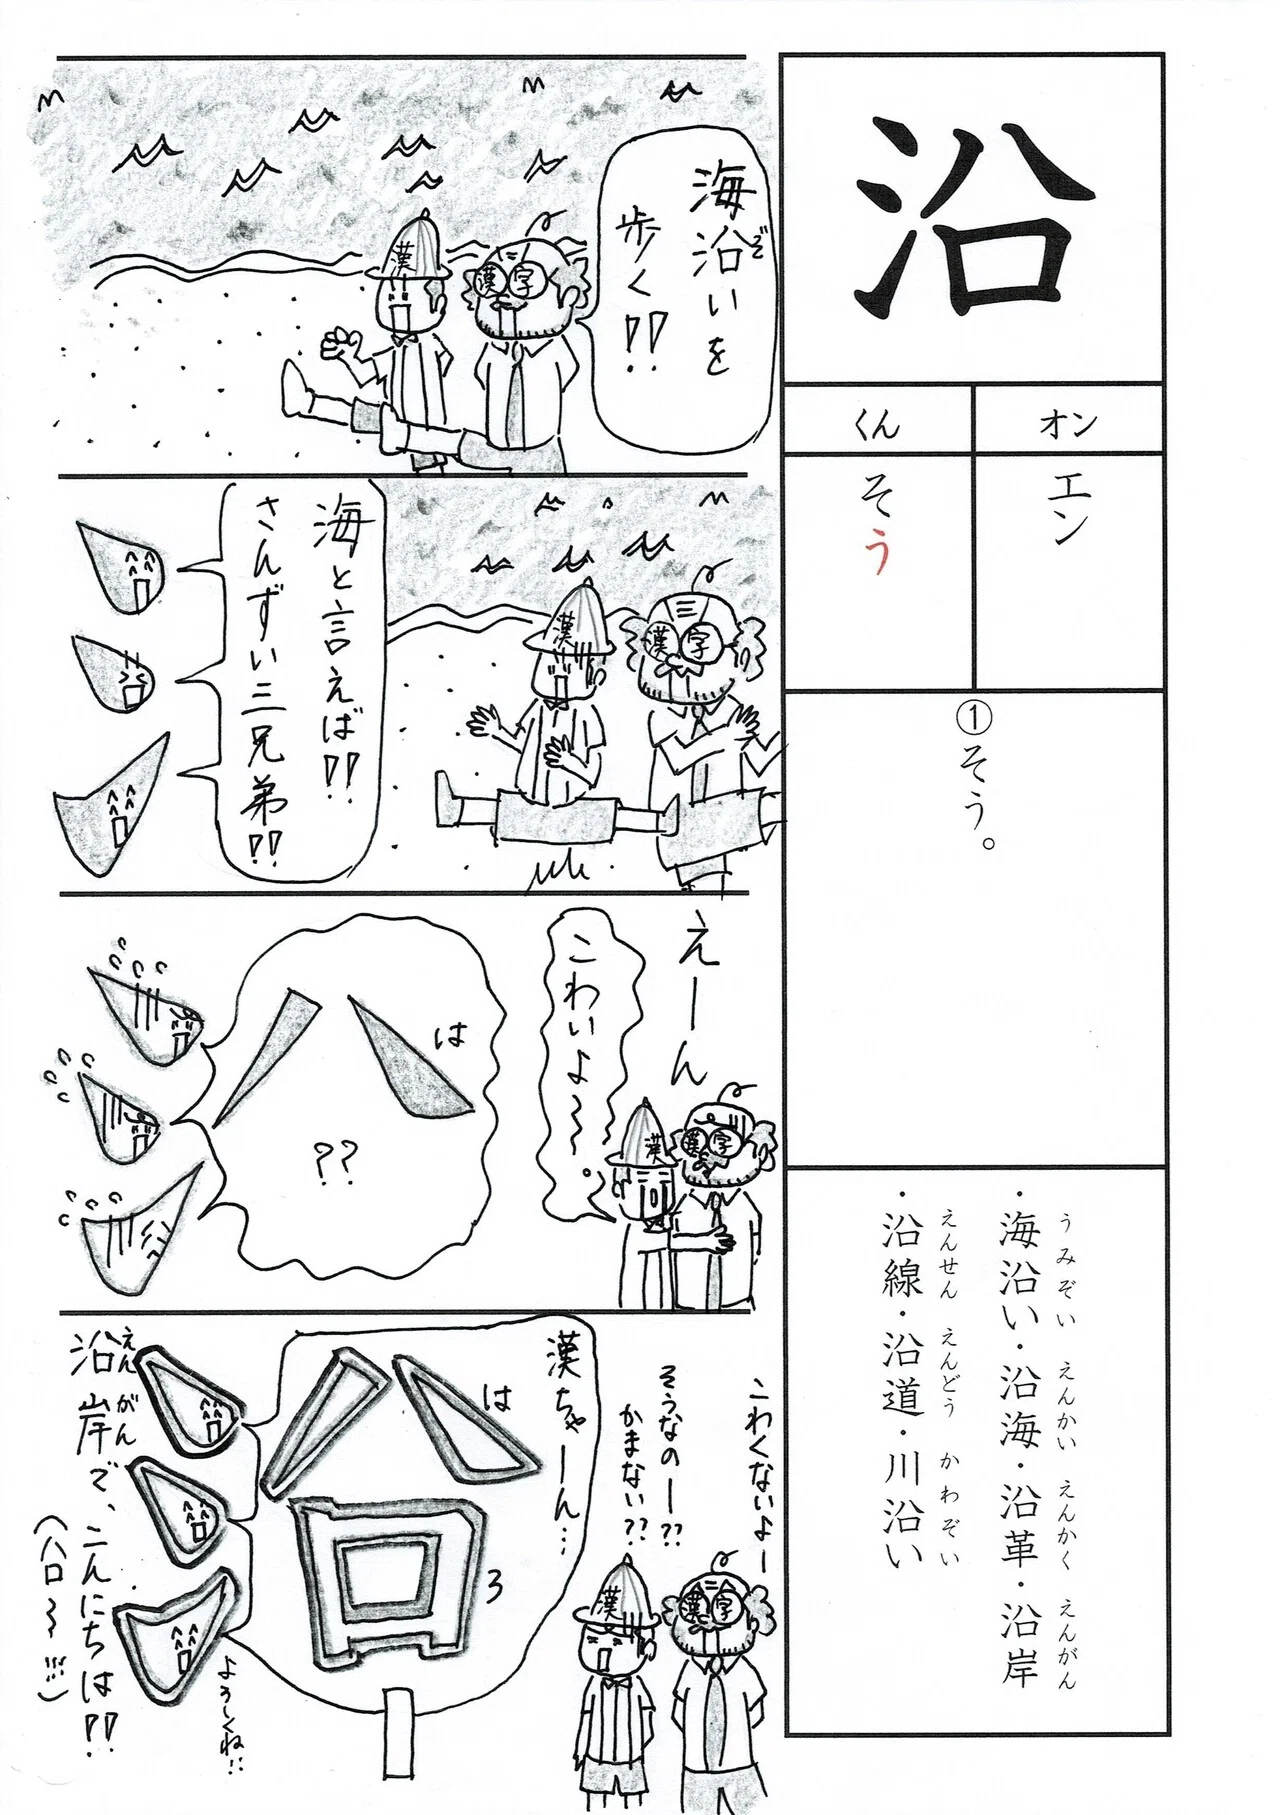 沿
オン
くん
エン
そう
①そう。
・海沿い・沿海・沿革・沿岸
うみぞい えんかい えんかく えんがん
・沿線・沿道・川沿い
えんせん えんどう かわぞい
海沿いを
ぞ
歩く!!
漢
漢字
海と言えば!!
さんずい三兄弟!!
漢
漢字
えーん
こわいよ〜。
漢
漢字
ハ
は
??
こわくないよー
そうなのー??
かまない??
漢
漢字
漢ちゃーん…
ハ
は
口
ろ
沿岸で、
えんがん
こんにちは!!
(ハロ〜!!!)
よろしくね!!